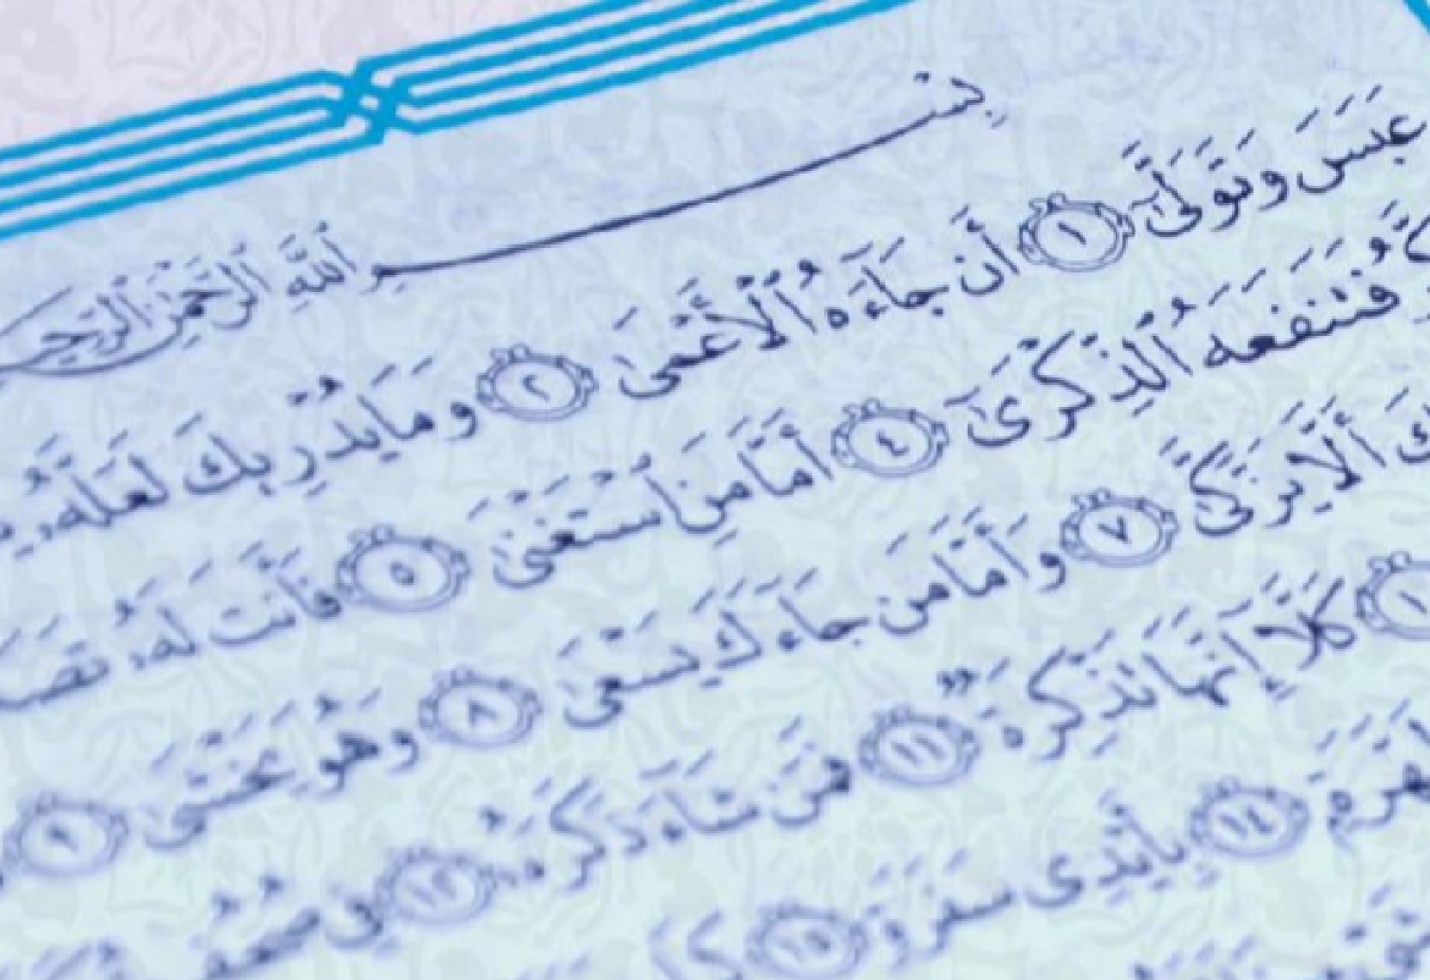 بِسْمِ ٱللَّهِ ٱلرَّحْمَٰنِ ٱلرَّحِيمِ
عَبَسَ وَتَوَلَّىٰٓ ١ أَن جَآءَهُ ٱلْأَعْمَىٰ ٢ وَمَا يُدْرِيكَ لَعَلَّهُۥ
فَتَنفَعَهُ ٱلذِّكْرَىٰٓ ٤ أَمَّا مَنِ ٱسْتَغْنَىٰ ٥ فَأَنتَ لَهُۥ
أَلَّا يَزَّكَّىٰ ٧ وَأَمَّا مَن جَآءَكَ يَسْعَىٰ ٨ وَهُوَ يَخْشَىٰ ٩
كَلَّآ إِنَّهَا تَذْكِرَةٌ ١١ فَمَن شَآءَ ذَكَرَهُۥ ١٢ فِى صُحُفٍ
١٤ بِأَيْدِى سَفَرَةٍ ١٥